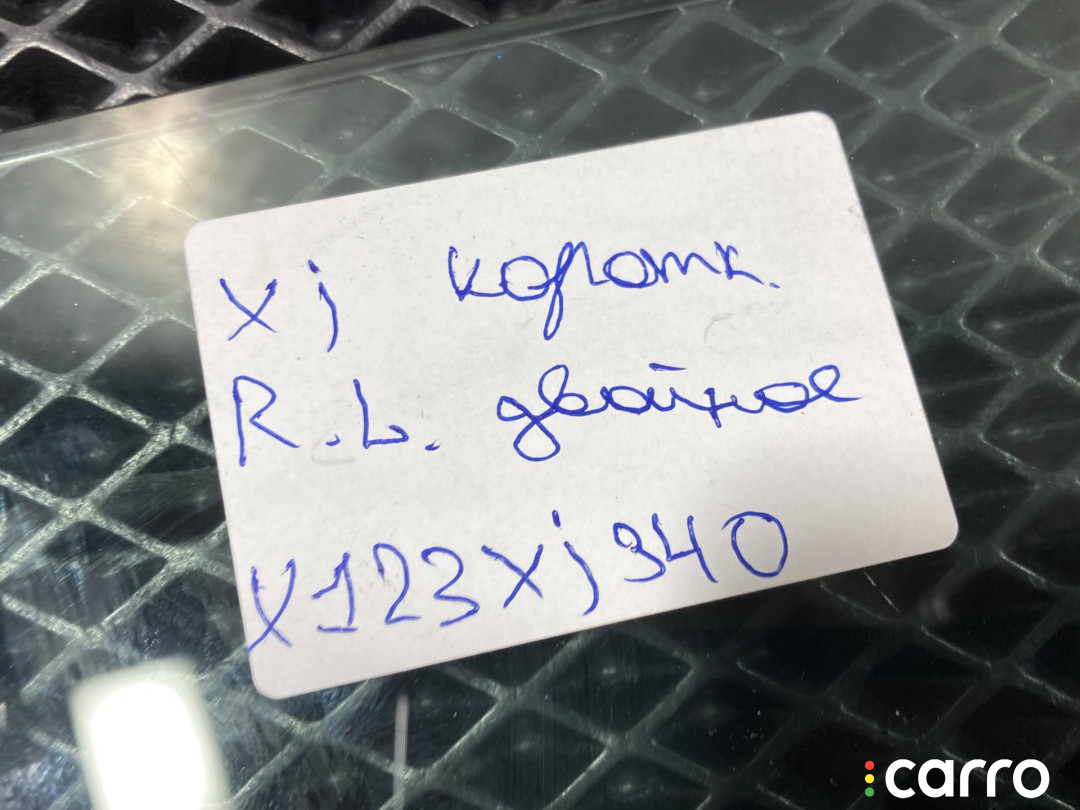 xj коротк.
R.L. двойное
X123xj940
carro